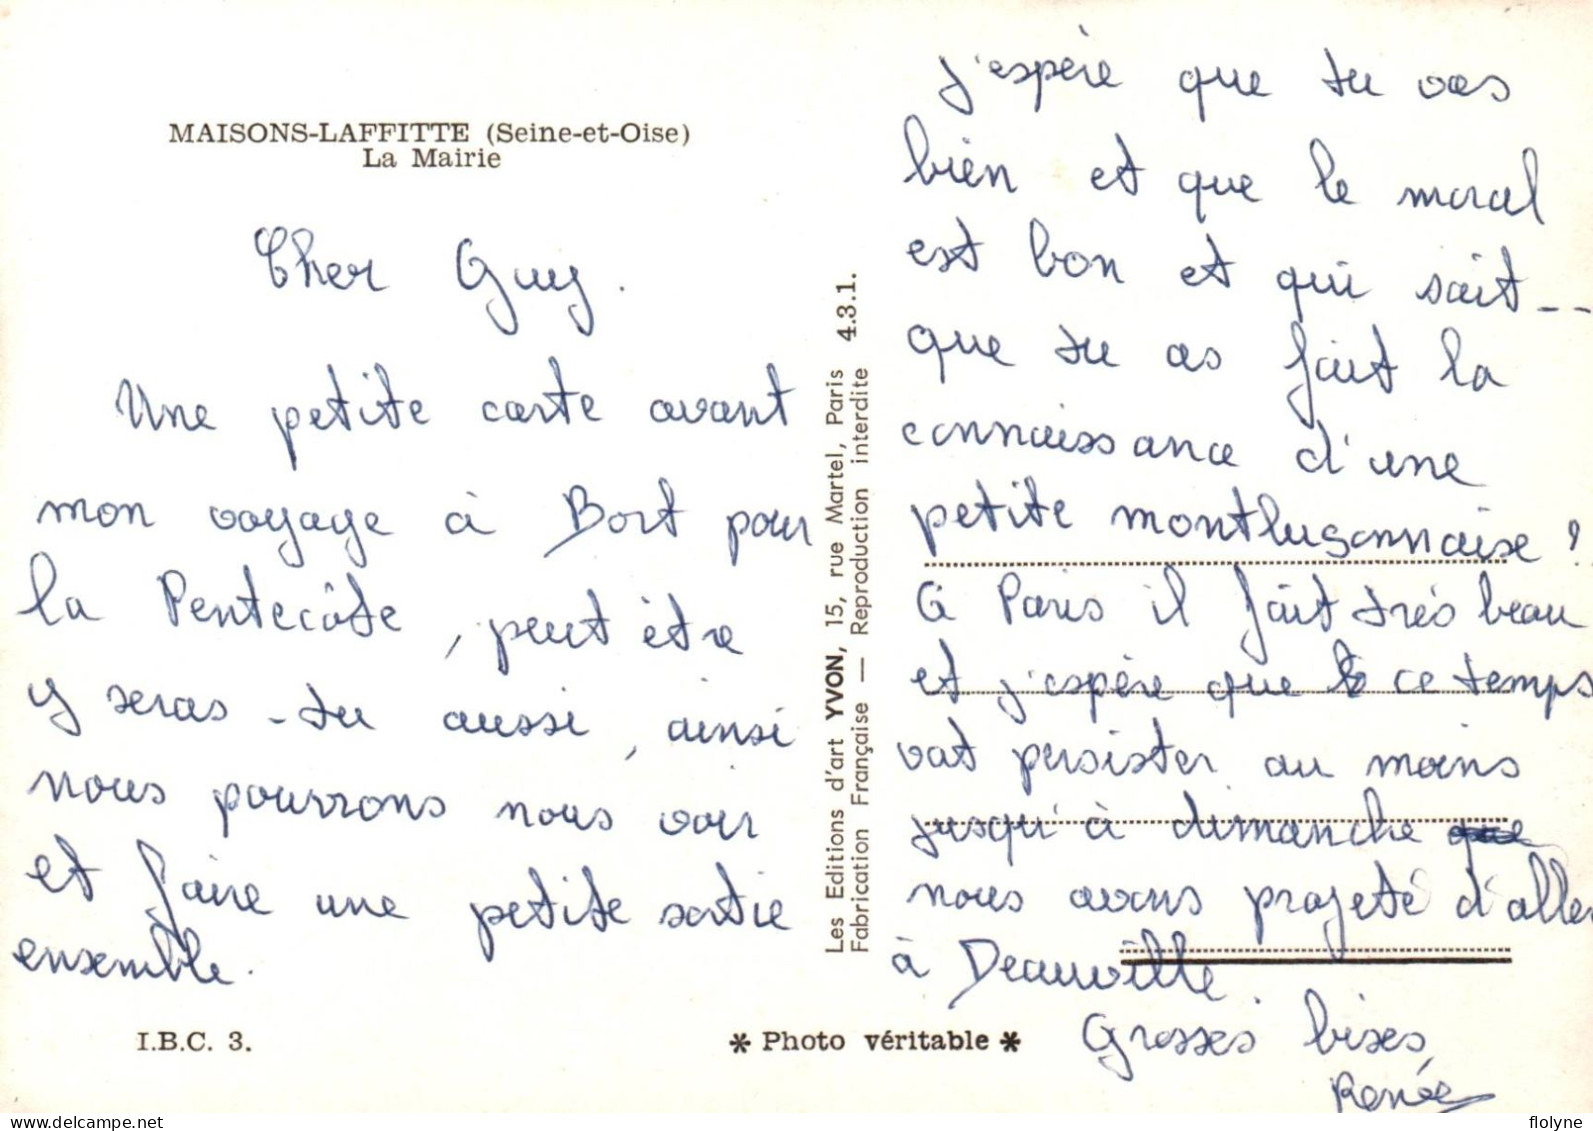 MAISONS-LAFFITTE (Seine-et-Oise)
La Mairie
Cher Guy.
Une petite carte avant
mon voyage à Bort pour
la Pentecôte, peut être
y seras-tu aussi, ainsi
nous pourrons nous voir
et faire une petite sortie
ensemble.
I.B.C. 3.
Les Editions d'art YVON, 15, rue Martel, Paris 4.3.1.
Fabrication Française — Reproduction interdite
* Photo véritable *
j'espère que tu vas
bien et que le moral
est bon et qui sait--
que tu as fait la
connaissance d'une
petite montluçonnaise !
à Paris il fait très beau
et j'espère que ce temps
vat persister au moins
jusqu'à dimanche que
nous avons projeté d'aller
à Deauville.
Grosses bises,
Renée
flolyne